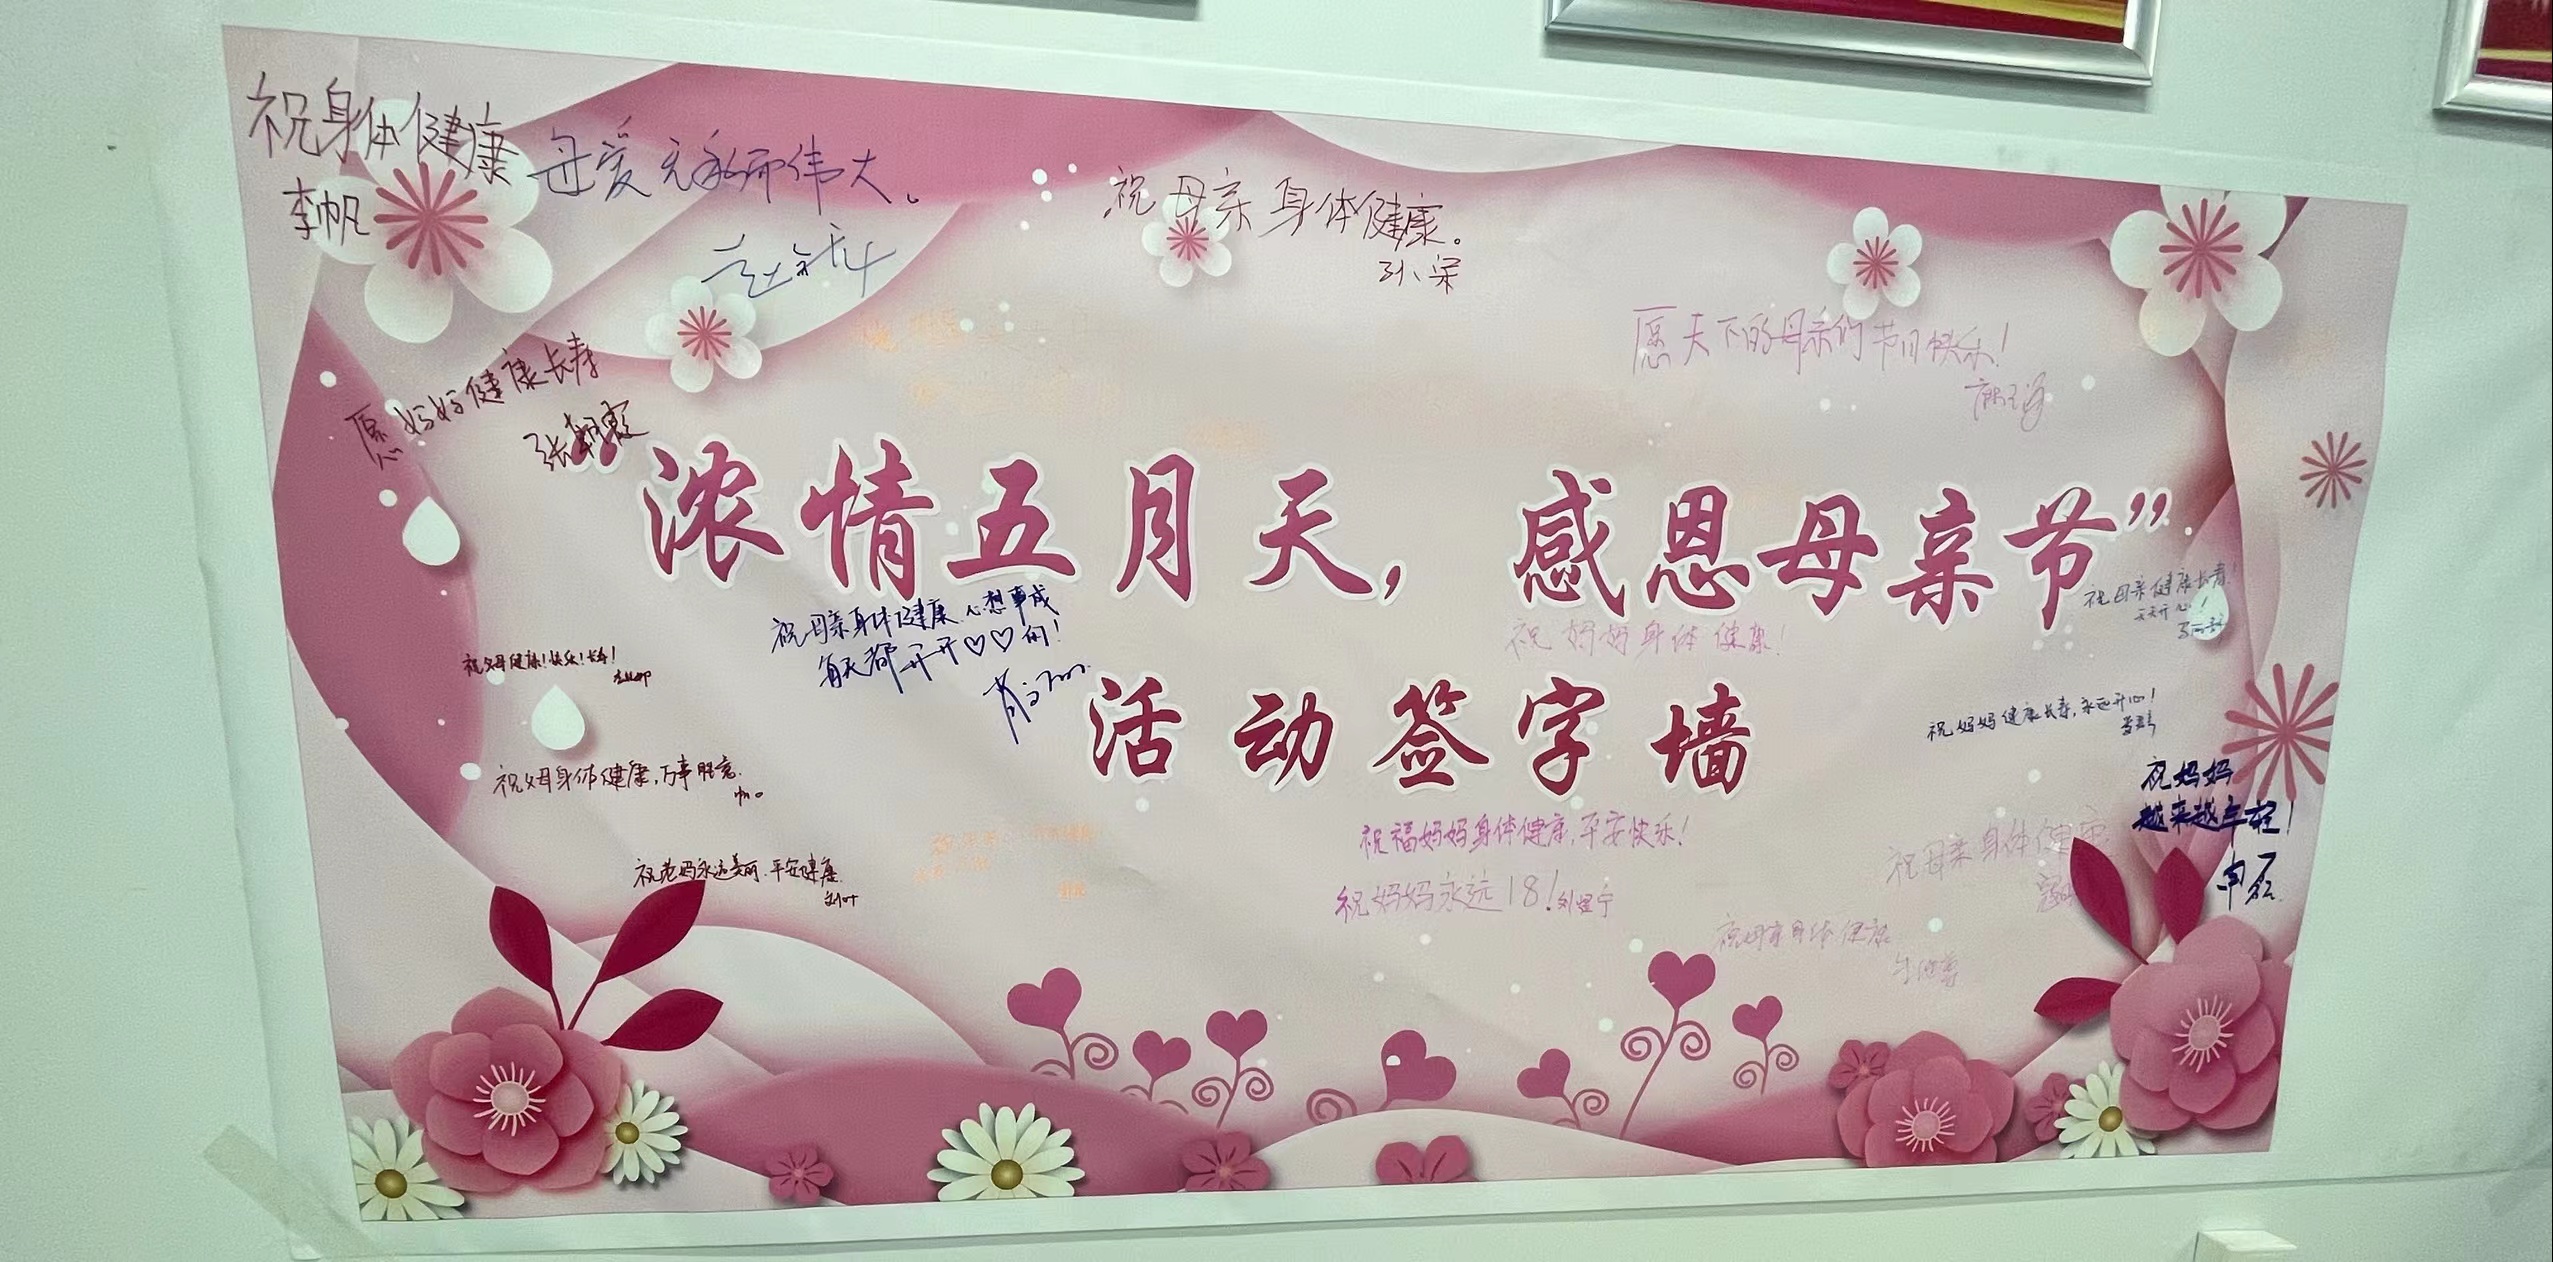 祝身体健康
李帆
母爱无私而伟大。
祝母亲身体健康。
愿天下的母亲们节日快乐！
愿妈妈健康长寿
浓情五月天，感恩母亲节”
祝母亲健康长寿！
天天开心！
祝母亲身体健康 心想事成
每天都开开♡♡的！
祝妈妈身体健康！
祝父母健康！快乐！长寿！
活动签字墙
祝妈妈健康长寿，永远开心！
祝父母身体健康，万事胜意.
祝妈妈
越来越年轻！
申磊
祝福妈妈身体健康，平安快乐！
祝老妈永远美丽.平安健康.
刘叶
祝妈妈永远18！
祝母亲身体健康
祝母亲身体健康